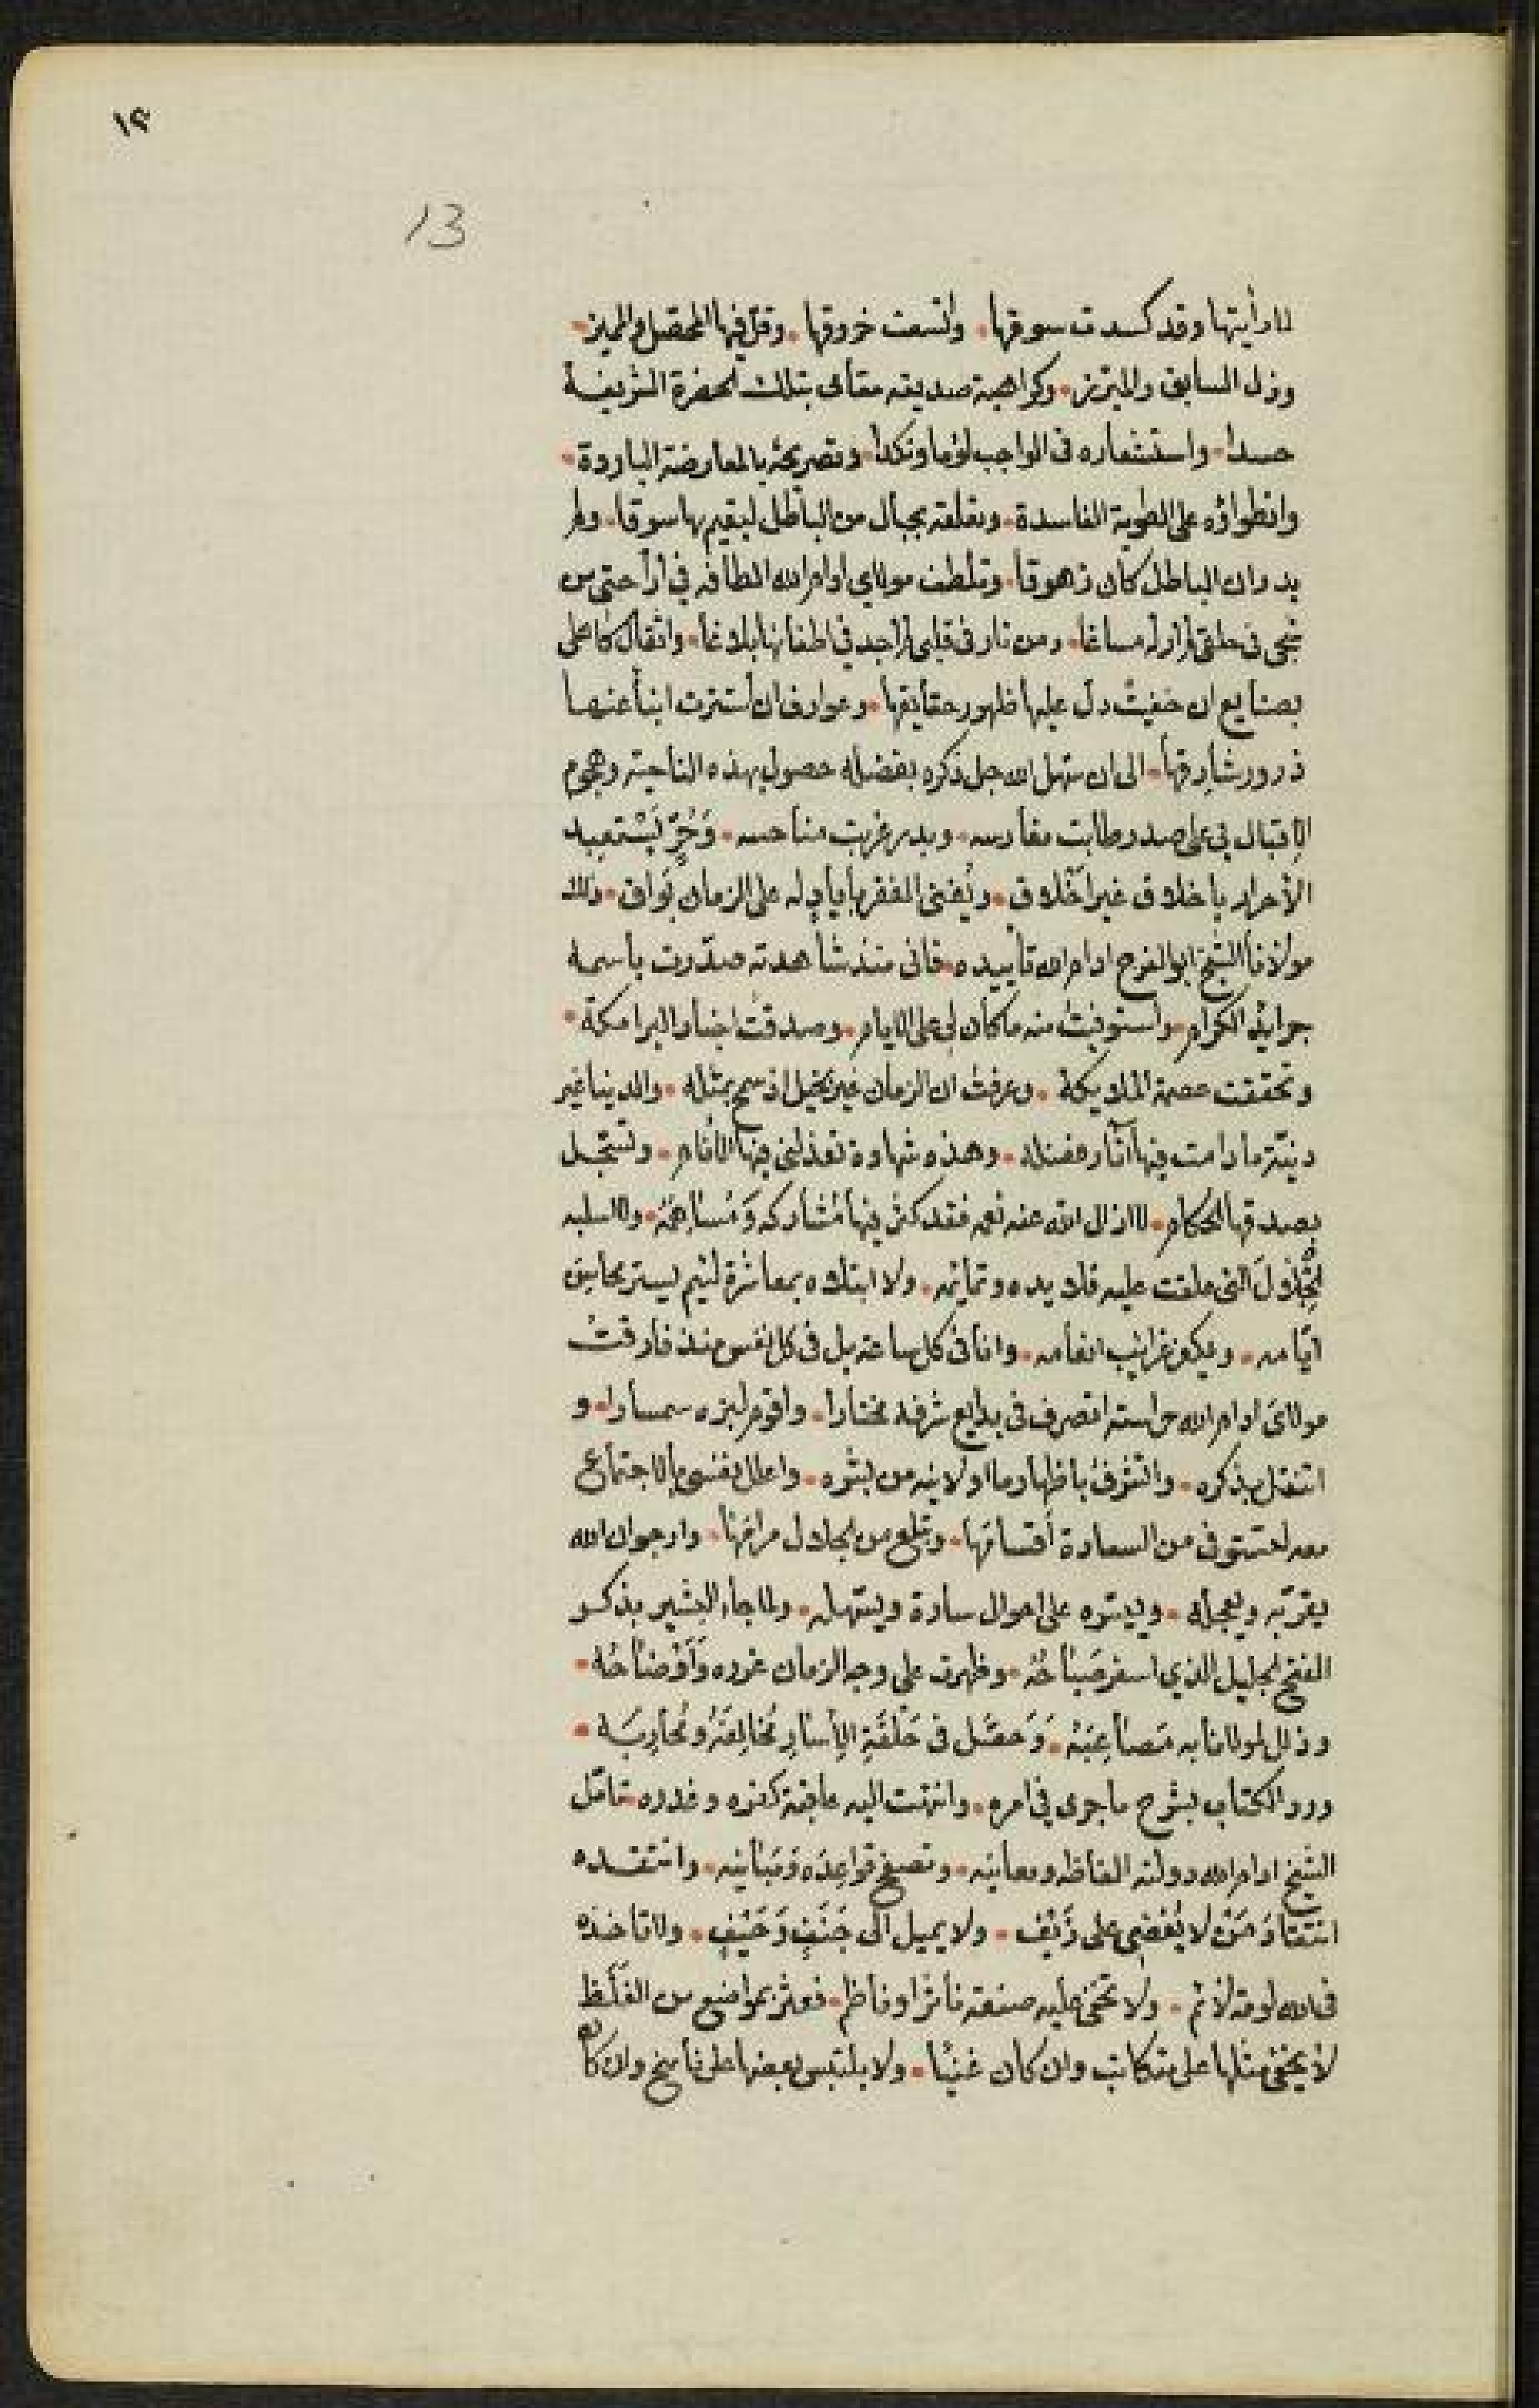 ١٣
13
لما رأيتها وقد كسدت سوقها. واتسعت خروقها. وقل فيها المحصل والمميز.
وذل السابق والمبرز. وكراهية صديقه مقامى بتلك الحضرة الشريفة
حسدا. واستشعاره فى الواجب لؤما ونكدا. وتصريحه بالمعارضة الباردة.
وانطواؤه على الطوية الفاسدة. وتعلقه بحبال من الباطل ليقيم بها سوقا. ولم
يدر ان الباطل كان زهوقا. وتلطف مولاى ادام الله الطافه فى ازاحتى من
شجى فى حلقى لم ار له مساغا. ومن نار فى قلبى لم اجد فى اطفائها بلاغا. واثقال كاهلى
بصنايع ان خفيت دل عليها ظهور حقايقها. وعوارف ان استترت انبأ عنها
ذرور شارقها. الى ان سهل الله جل ذكره بفضله حصولى بهذه الناحية وهجوم
الاقبال بى على صدر طابت مغارسه. وبدر غربت مناحسه. وحر يستعبد
الأحرار باخلاق غير اخلاق. ويغنى المفقر بأياد له على الزمان بواق. ذلك
مولانا الشيخ ابو الفرج ادام الله تأييده. فانى منذ شاهدته صدرت باسمه
جرايد الكرام. واستوفيت منه ما كان لى على الايام. وصدقت اخبار البرامكة.
وتحققت عصمة الملايكة. وعرفت ان الزمان غير بخيل اذ سمح بمثله. والدنيا غير
دنية ما دامت فيها آثار فضله. وهذه شهادة تعذلنى فيها الأنام. وتسجل
بصدقها الحكام. لا ازال الله عنه نعمه فقد كثر فيها مشاركه ومساهمه. ولا سلبه
الجلال التى علقت عليه قلايده وتمائمه. ولا ابتلاه بمعاشرة لئيم يستر محاسن
ايامه. ويكفر غرائب انعامه. وانا فى كل ساعة بل فى كل نفس منذ فارقت
مولاى ادام الله حراسته اتصرف فى بدايع شرفه مختارا. واقوم لبزه سمسارا. و
اتنقل بذكره. واتشرف باظهار ما اولانيه من بشره. واعلل نفسى بالاجتماع
معه لتستوفى من السعادة أقسامها. وتبلغ من الجلال مرامها. وارجو ان الله
يقربه ويعجله. وييسره على احوال سارة ويسهله. ولما جاء البشير بذكر
الفتح الجليل الذي اسفر صباحه. وظهرت على وجه الزمان غرره وأوضاحه.
وذلل لمولانا به مصاعبه. وحصل فى حلقة الإسار مخالفه ومحاربه.
ورد الكتاب بشرح ما جرى فى امره. وانتهت اليه عاقبة كفره وغدره. تأمل
الشيخ ادام الله دولته الفاظه ومعانيه. وتصفح قواعده ومبانيه. وانتقده
انتقاد من لا يغضى على زيف. ولا يميل الى جنف وحيف. ولا تاخذه
فى الله لومة لائم. ولا تخفى عليه صنعة ناثر او ناظم. فعثر بمواضع من الغلط
لا يخفى مثلها على متكاتب وان كان غبيا. ولا يلتبس بعضها على ناسخ وان كان